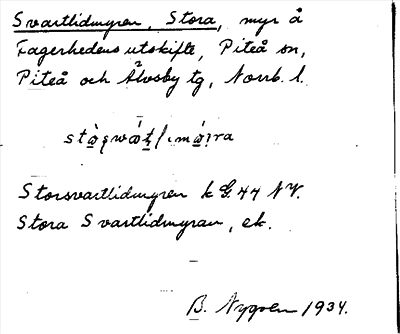 Svartlidmyren, Stora, myr å
Fagerhedens utskifte, Piteå sn,
Piteå och Älvsby tg, Norrb. l.
Storsvartlidmyren k G. 44 NV.
Stora Svartlidmyran, ek.
B. Nygren 1934.